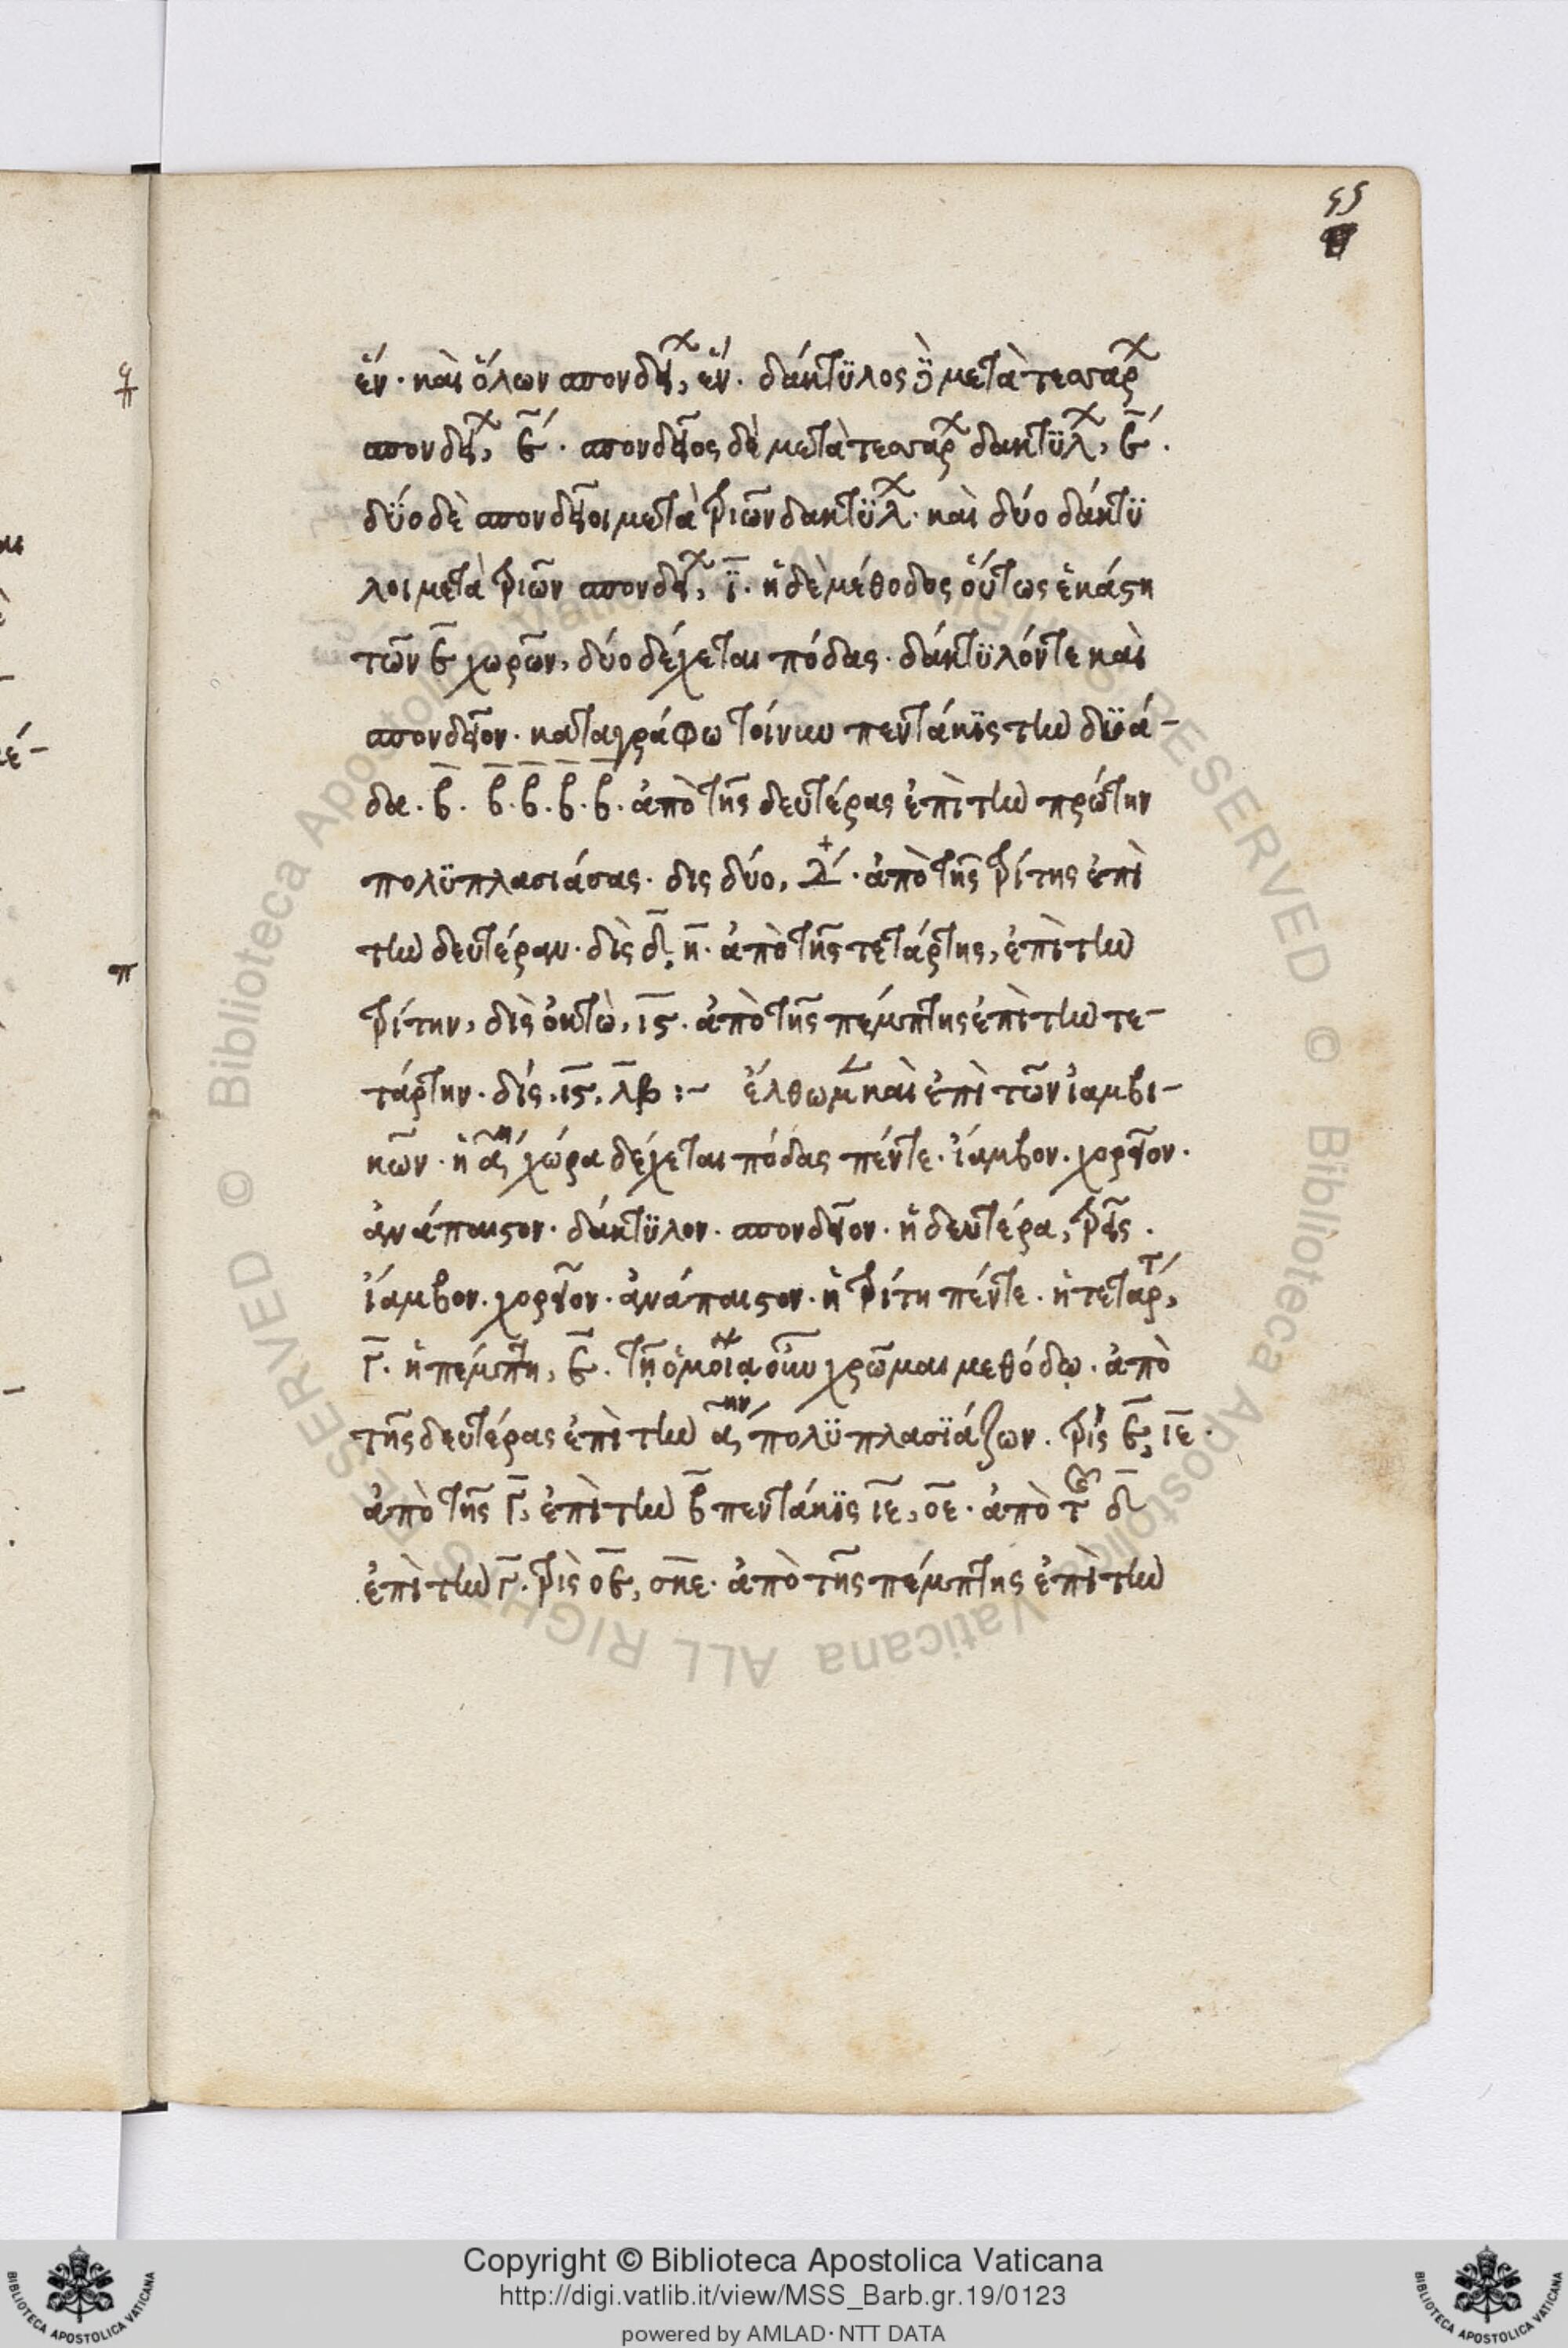 55
ἕν · καὶ ὅλων σπονδείων, ἕν · δάκτϋλος δὲ μετὰ τεσσάρων
σπονδείων, ε̄ · σπονδεῖος δὲ μετὰ τεσσάρων δακτϋλων, ε̄ ·
δϋο δὲ σπονδεῖοι μετὰ τριῶν δακτϋλων · καὶ δύο δάκτϋ
λοι μετὰ τριῶν σπονδείων, ῑ · ἡ δὲ μέθοδος οὕτως ἑκάστη
τῶν ε̄ χωρῶν, δύο δέχεται πόδας · δάκτϋλόν τε καὶ
σπονδεῖον · καταγράφω τοίνυν πεντάκϊς τὴν δϋά-
δα · β̄ · β̄ · β̄ · β̄ · β̄ · ἀπὸ τῆς δευτέρας ἐπὶ τὴν πρώτην
πολϋπλασιάσας · δις δύο, · ἀπὸ τῆς τρίτης ἐπὶ
τὴν δευτέραν · δὶς δ̄, η̄ · ἀπὸ τῆς τετάρτης, ἐπὶ τὴν
τρίτην, δὶς ὀκτὼ, ῑϛ · ἀπὸ τῆς πέμπτης ἐπὶ τὴν τε-
τάρτην · δίς · ῑϛ, λ̄β :- ἔλθωμεν καὶ ἐπὶ τῶν ἰαμβι-
κῶν · ἡ ᾱη χώρα δέχεται πόδας πέντε · ἴαμβον · χορεῖον ·
ἀνάπαιστον · δάκτϋλον · σπονδεῖον · ἡ δευτέρα, τρεῖς ·
ἴαμβον · χορεῖον · ἀνάπαιστον · ἡ τρίτη πέντε · ἡ τετάρτ,
γ̄ · ἡ πέμπτη, ε̄ · τῇ ὁμοίᾳ οὖν χρῶμαι μεθόδῳ · ἀπὸ
τῆς δευτέρας ἐπὶ τὴν ᾱην πολϋπλασϊάζων · τρὶς ε̄, ῑε ·
ἀπὸ τῆς γ̄, ἐπὶ τὴν β̄ πεντάκϊς ῑε, ο̄ε · ἀπὸ τῆς δ̄
ἐπὶ τὴν γ̄ · τρὶς ο̄ε, σ̄κε · ἀπὸ τῆς πέμπτης ἐπὶ τὴν
Copyright © Biblioteca Apostolica Vaticana
http://digi.vatlib.it/view/MSS_Barb.gr.19/0123
powered by AMLAD · NTT DATA